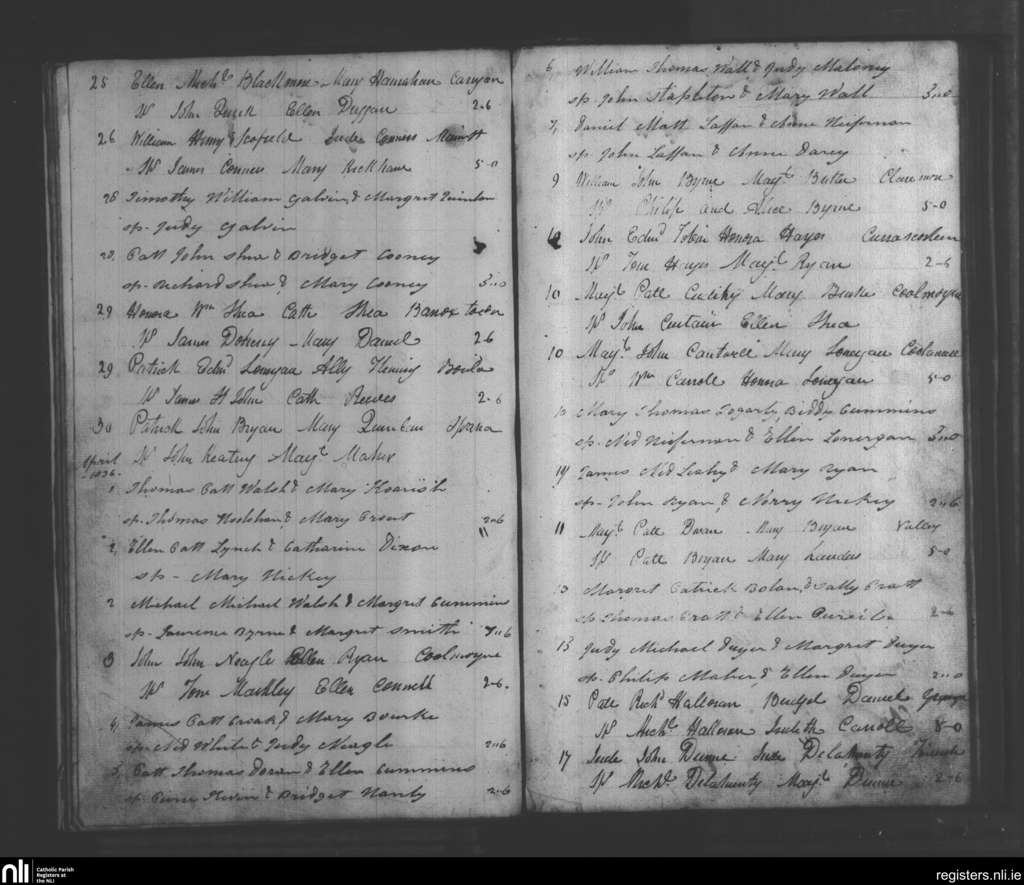 25 Ellen Michl Blackmore Mary Hanrahan
Sp John Ellen Duggan 2-6
26 William Henry Scofield Jude Conners
Sp James Conners Mary Kickham 5-0
28 Timothy William Galvin & Margrit Quinlan
sp. Judy Galvin
28. Patt John Shea & Bridget Cooney
sp. Richard Shea & Mary Cooney 5"0
29 Honora Wm Shea Cath Shea
Sp James Doherty Mary Daniel 2 6
29 Patrick Edmd Lonergan Ally Fleming
Sp James St John Cath Reeves 2-6
30 Patrick John Bryan Mary Quinlan
April 1836. Sp John Keating Mayt Maher
1 Thomas Patt Walsh & Mary
sp. Thomas & Mary 2"6
2, Ellen Patt Lynch & Catharine Dixon
sp - Mary Hickey
2 Michael Michael Walsh & Margrit Cummins
sp. Laurence Byrne & Margret Smith 7"6
3 John John Neagle Ellen Ryan Coolmoyne
Sp Tom Mackley Ellen Connell 2-6.
4, James Patt Croak & Mary Bourke
sp. Ned White & Judy Neagle 2"6
5, Patt Thomas Doran & Ellen Cummins
sp. & Bridget Hanly 2"6
6, William Thomas Wall & Judy Malony
sp. John Stapleton & Mary Wall 5"0
7, Daniel Matt Laffan & Anne Heifernan
sp. John Laffan & Anne Darcy
9 William John Byrne Mayt Butler
Sp Philip and Alice Byrne 5-0
10 John Edmd Tobin Honora Hayes
Sp Tom Hayes Mayt Ryan 2-6
10 Mayt Patt Mary Burke Coolmoyne
Sp John Curtain Ellen Shea
10 Mayt John Cantwell Mary Lonergan
Sp Wm Carroll Honora Lonergan 5-0
Mary Thomas Fogarty Biddy Cummins
sp. Ned Heifernan & Ellen Lonergan 5"0
James Ned Leahy & Mary Ryan
sp. John Ryan & Norry Hickey 2"6
11 Mayt Patt Doran Mary Bryan Valley
Sp Patt Bryan Mary Landers 5-0
13 Margret Patrick Bolan & Sally Pratt
sp Thomas Pratt & Ellen 2-6
15 Judy Michael Dwyer & Margret Dwyer
sp. Philip Maher & Ellen Dwyer
15 Patt Richd Halloran Bridget Daniel
Sp Michl Halloran Judith Carroll 5-0
17 Jude John Dunne Jude Delahunty
Sp Michl Delahunty Mayt Dunne 2-6
nli Catholic Parish
Registers at
the NLI
registers.nli.ie